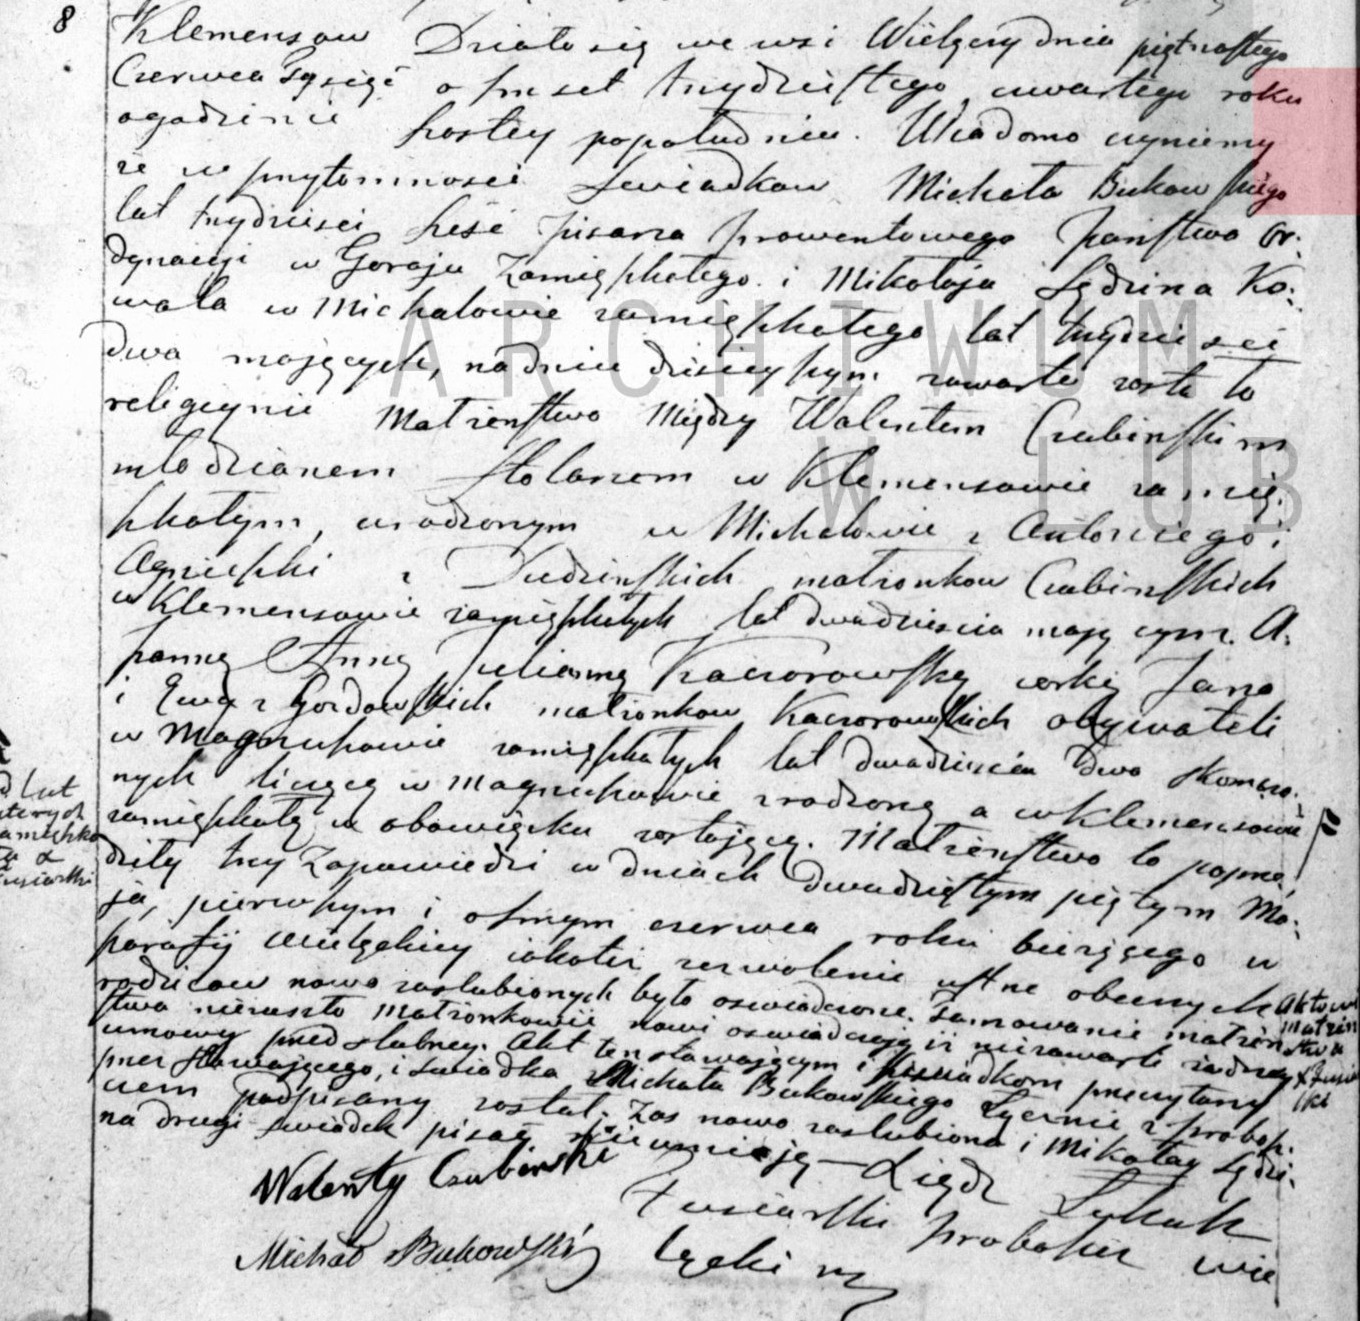 8
Klemensow Działo się we wsi Wielączy dnia piętnastego
Czerwca Tysiąc ośmset trzydziestego czwartego roku
ogodzinie szostey popołudniu. Wiadomo czyniemy
że w przytomności Swiadkow Michała Bukowskiego
lat trzydzieści sześć pisarza prowentowego Państwa Or:
dynacyi w Goraju Zamięszkałego i Mikołaja Sędzina Ko:
wala w Michalowie zamięszkałego lat trzydzieści
dwa mających, na dniu dzisieyszym zawarte zosta to
religijnie Małżeństwo Między Walentem Czubińskim
młodzianem Stolarzem w Klemensowie zamię:
szkałym, urodzonym w Michalowie z Antoniego i
Agnieszki z Dudzińskich małżonkow Czubińskich
w Klemensowie zamięszkałych lat dwadzieścia mającym. A.
panną Anną Julianną Kaczorowską corką Jana
i Ewy z Gordowskich małżonkow Kaczorowskich obywateli
w Magnuszowie zamięszkałych lat dwadzieścia dwa skonczo:
nych liczącą w Magnuszowie zrodzoną a w Klemensowie
zamięszkałą w obowiązku zostającą. Małżeństwo to poprze:
dziły trzy Zapowiedzi w dniach dwudziestym piątym Ma:
ja, pierwszym i osmym czerwca roku bieżącego w
parafij Wielączkiey jakoteż zezwolenie ustne obecnych
rodzicow nowo zaslubionych było oswiadczone. Tamowanie małżeń
stwa niezaszło Małżonkowie nowi oswiadczają iż niezawarli żadney
umowy przedslubney. Akt ten stawającym i Swiadkom przeczytany
przez stawającego, i swiadka Michała Bukowskiego łącznie z probosz:
czem podpisany został; Zas nowo zaslubiona i Mikołay Sędzi:
na drugi swiadek pisać nieumieją – Xiądz Łukasz
Walenty Czubiński
Tusiarski proboszcz wie
Michał Bukowski
lącki
Lat
Akt
Małżeń
stwa
ARCHIWUM
W LUB